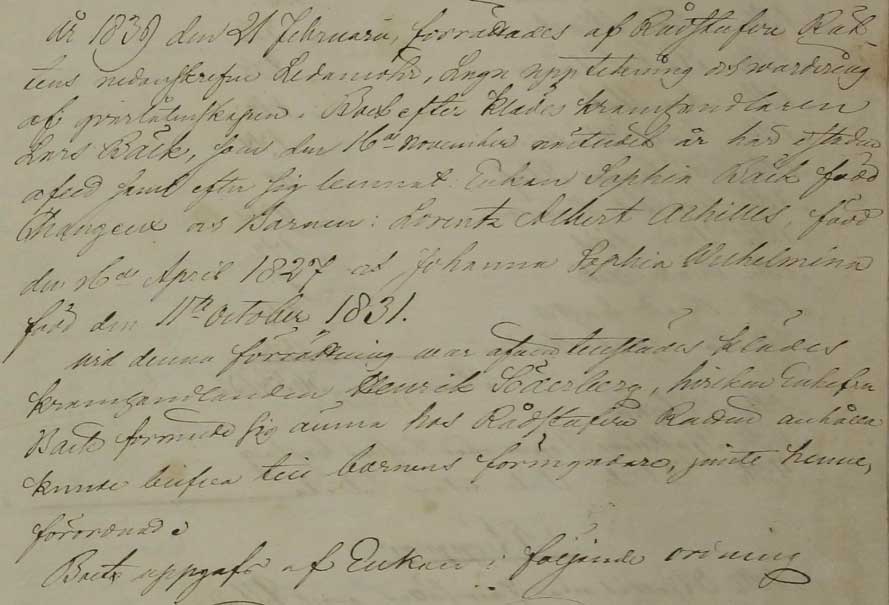 År 1839 den 21 Februarii, förrättades af Rådstufvu Rät-
tens undertecknade Ledamöter, Laga uppteckning och wärdering
af qvarlåtenskapen i Boet efter Klädes kramhandlaren
Lars Bäck, som den 16de November nästvikit år har efter
afled samt efter sig lemnat: Enkan Sophia Bäck född
Changeux och Barnen: Lorentz Albert Achilles, född
den 26de April 1827 och Johanna Sophia Wilhelmina
född den 11te October 1831.
wid denna förrättning war äfven tillstädes Klädes
kramhandlanden Henrik Söderberg, hvilken Enkefru
Bäck förmente sig ämna hos Rådstufvu Rätten anhålla
kunde blifva till barnens förmyndare, jemte henne,
förordnad.
Boet uppgafs af Enkan i följande ordning